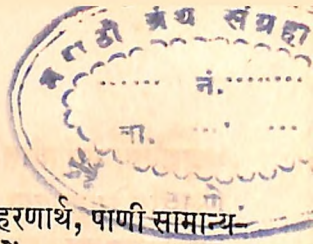 मराठी ग्रंथ संग्रहा
नं.
ना.
हरणार्थ, पाणी सामान्य-